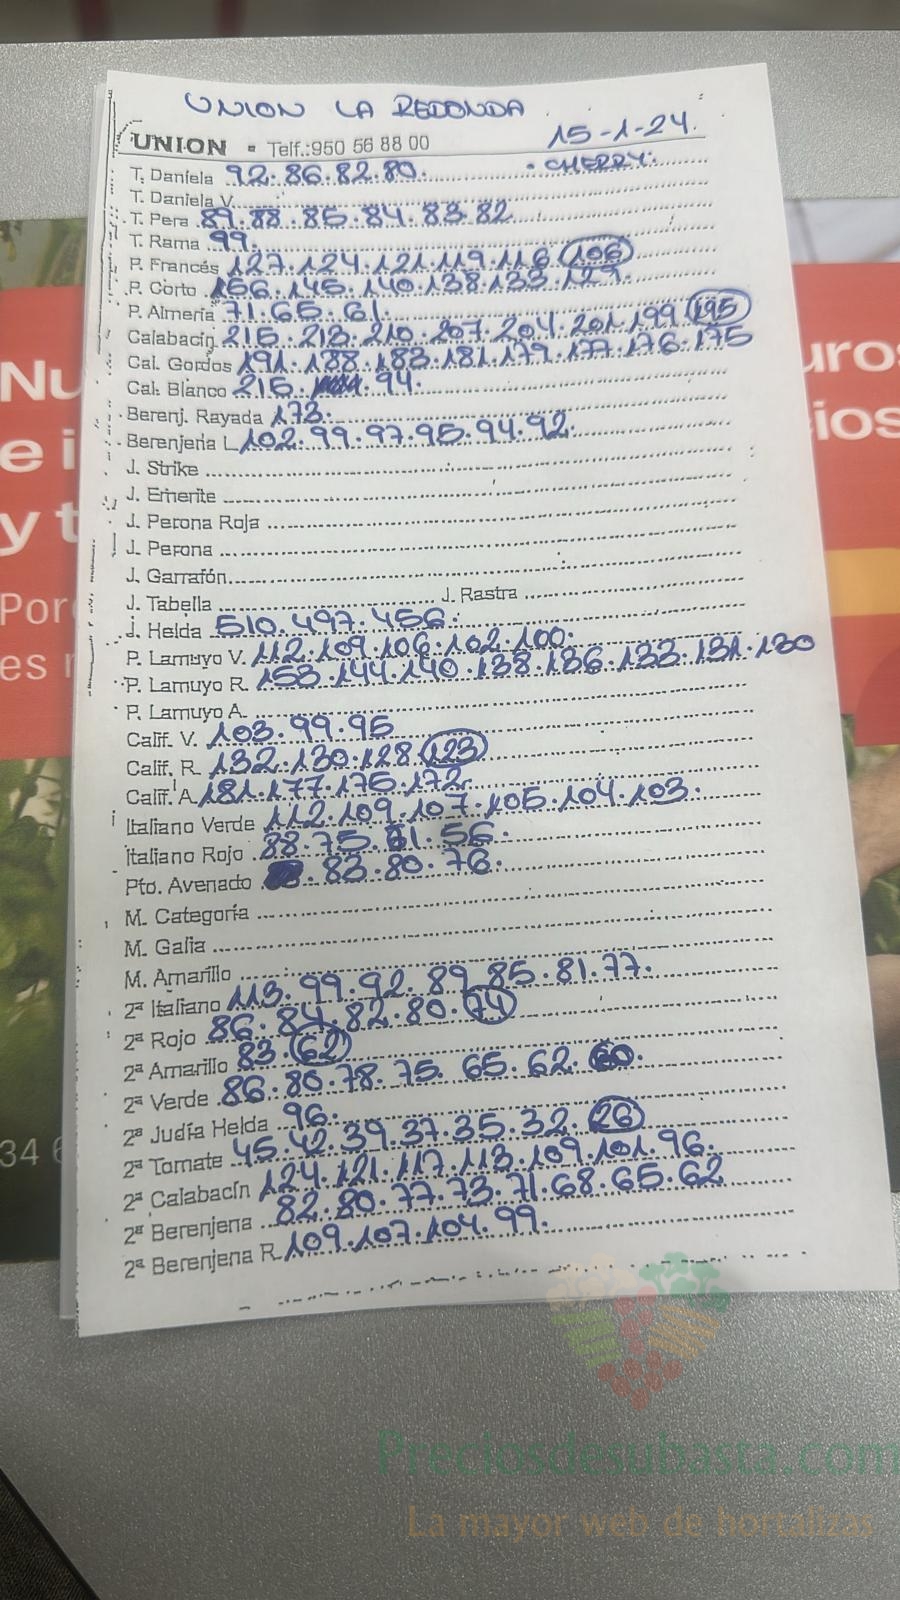 UNION LA REDONDA
UNION ▪ Telf.:950 56 88 00 15-1-24.
T. Daniela 92.86.82.80. . CHERRY.
T. Daniela V.
T. Pera 89.88.85.84.83.82
T. Rama 99.
P. Francés 127.124.121.119.116.106
P. Corto 156.145.140.138.133.129.
P. Almería 71.65.61.
Calabacín 215.213.210.207.204.201.199.195
Cal. Gordos 191.188.183.181.179.177.176.175
Cal. Blanco 215. 94.
Berenj. Rayada 173.
Berenjena L. 102.99.97.95.94.92.
J. Strike
J. Emerite
J. Perona Roja
J. Perona
J. Garrafón
J. Tabella J. Rastra
J. Helda 510.497.456.
P. Lamuyo V. 112.109.106.102.100.
P. Lamuyo R. 153.144.140.138.136.133.131.130
P. Lamuyo A.
Calif. V. 103.99.95
Calif. R. 132.130.128.123
Calif. A. 181.177.175.172
Italiano Verde 112.109.107.105.104.103.
Italiano Rojo 88.75.61.56.
Pto. Avenado .83.80.76.
M. Categoría
M. Galia
M. Amarillo
2ª Italiano 113.99.92.89.85.81.77.
2ª Rojo 86.84.82.80.74
2ª Amarillo 83.62
2ª Verde 86.80.78.75.65.62.60.
2ª Judía Helda 96.
2ª Tomate 45.42.39.37.35.32.26
2ª Calabacín 124.121.117.113.109.101.96.
2ª Berenjena 82.80.77.73.71.68.65.62
2ª Berenjena R. 109.107.104.99.
Nu
e i
y t
Por
es
34 6
uros
ios
Preciosdesubasta.com
La mayor web de hortalizas